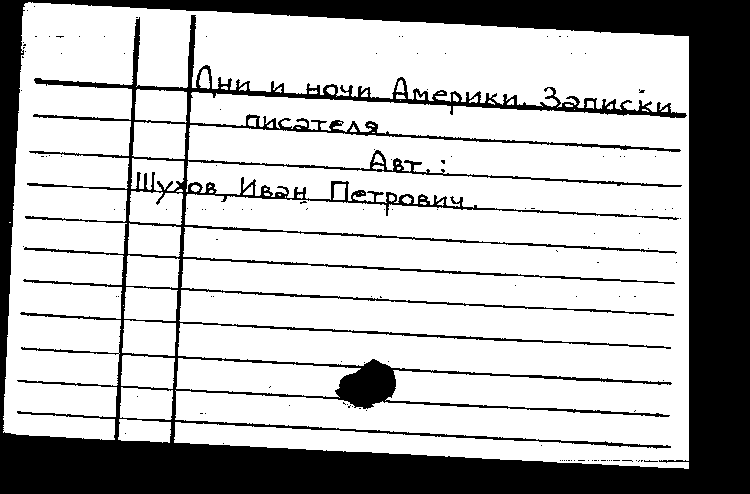 Дни и ночи Америки. Записки
писателя.
Авт.:
Шухов, Иван Петрович.